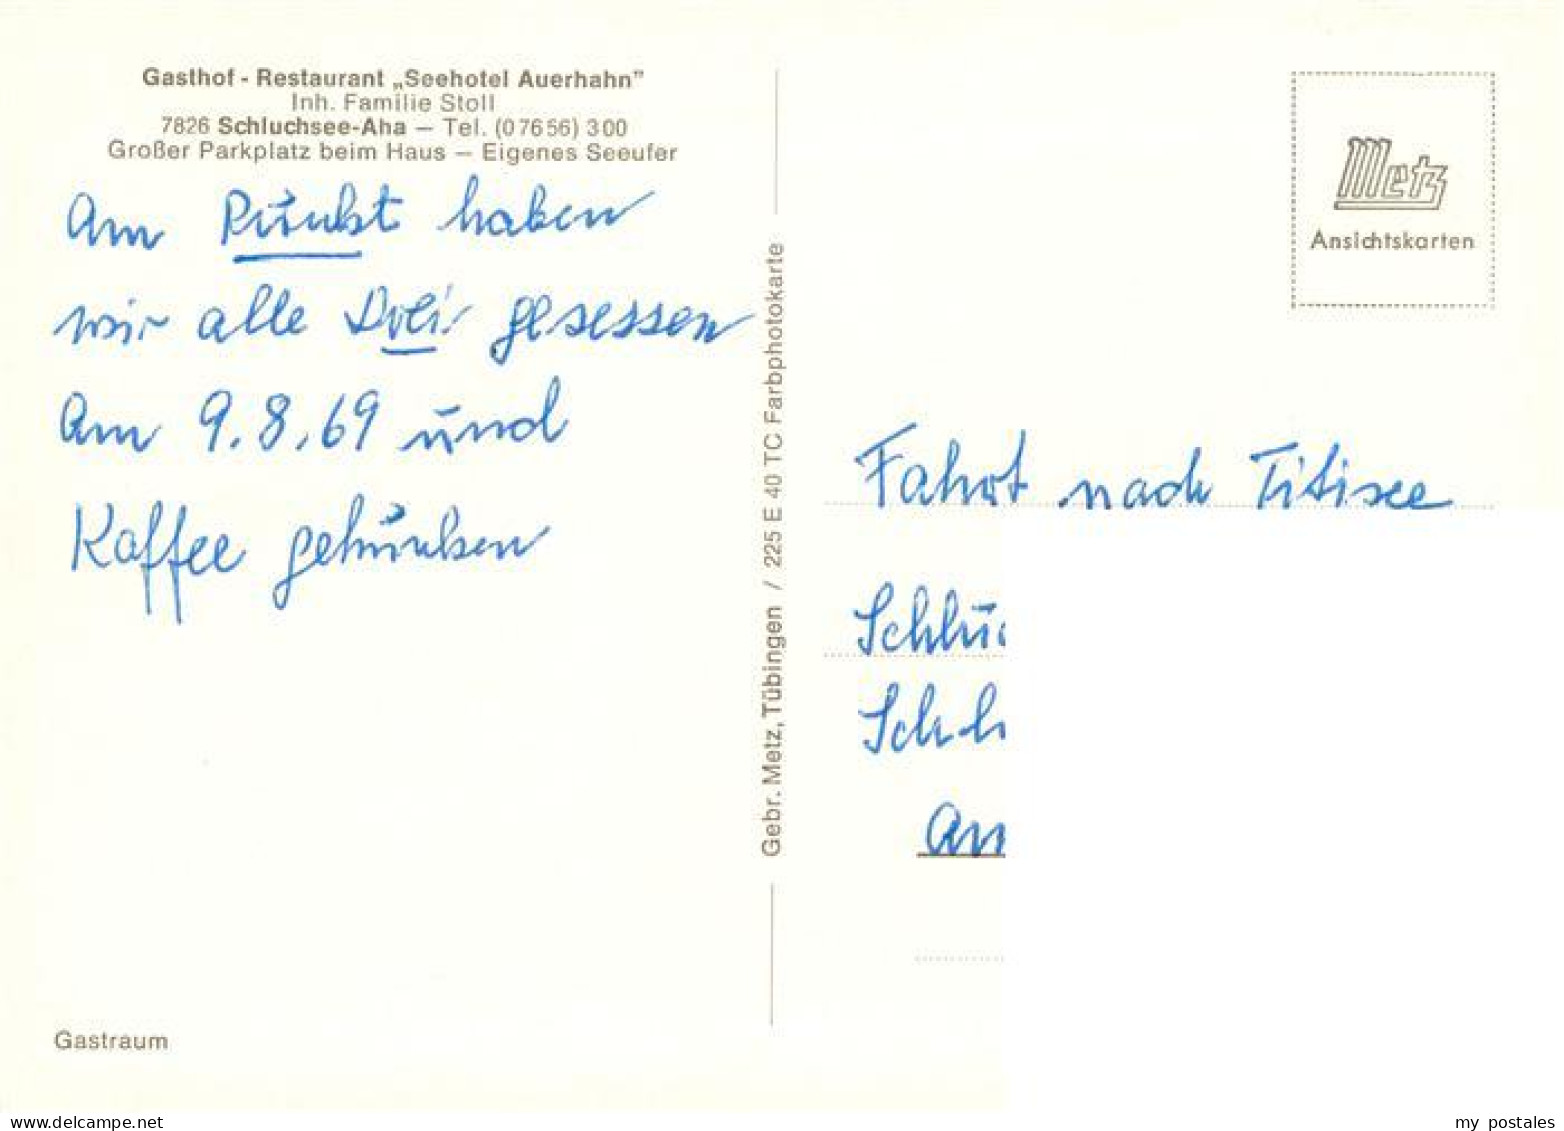 Gasthof - Restaurant „Seehotel Auerhahn”
Inh. Familie Stoll
7826 Schluchsee-Aha — Tel. (07656) 300
Großer Parkplatz beim Haus — Eigenes Seeufer
Am Punkt haben
wir alle Drei gesessen
Am 9.8.69 und
Kaffee getrunken
Gastraum
Gebr. Metz, Tübingen / 225 E 40 TC Farbphotokarte
Metz
Ansichtskarten
Fahrt nach Titisee
Am
delcampe.net
my_postales